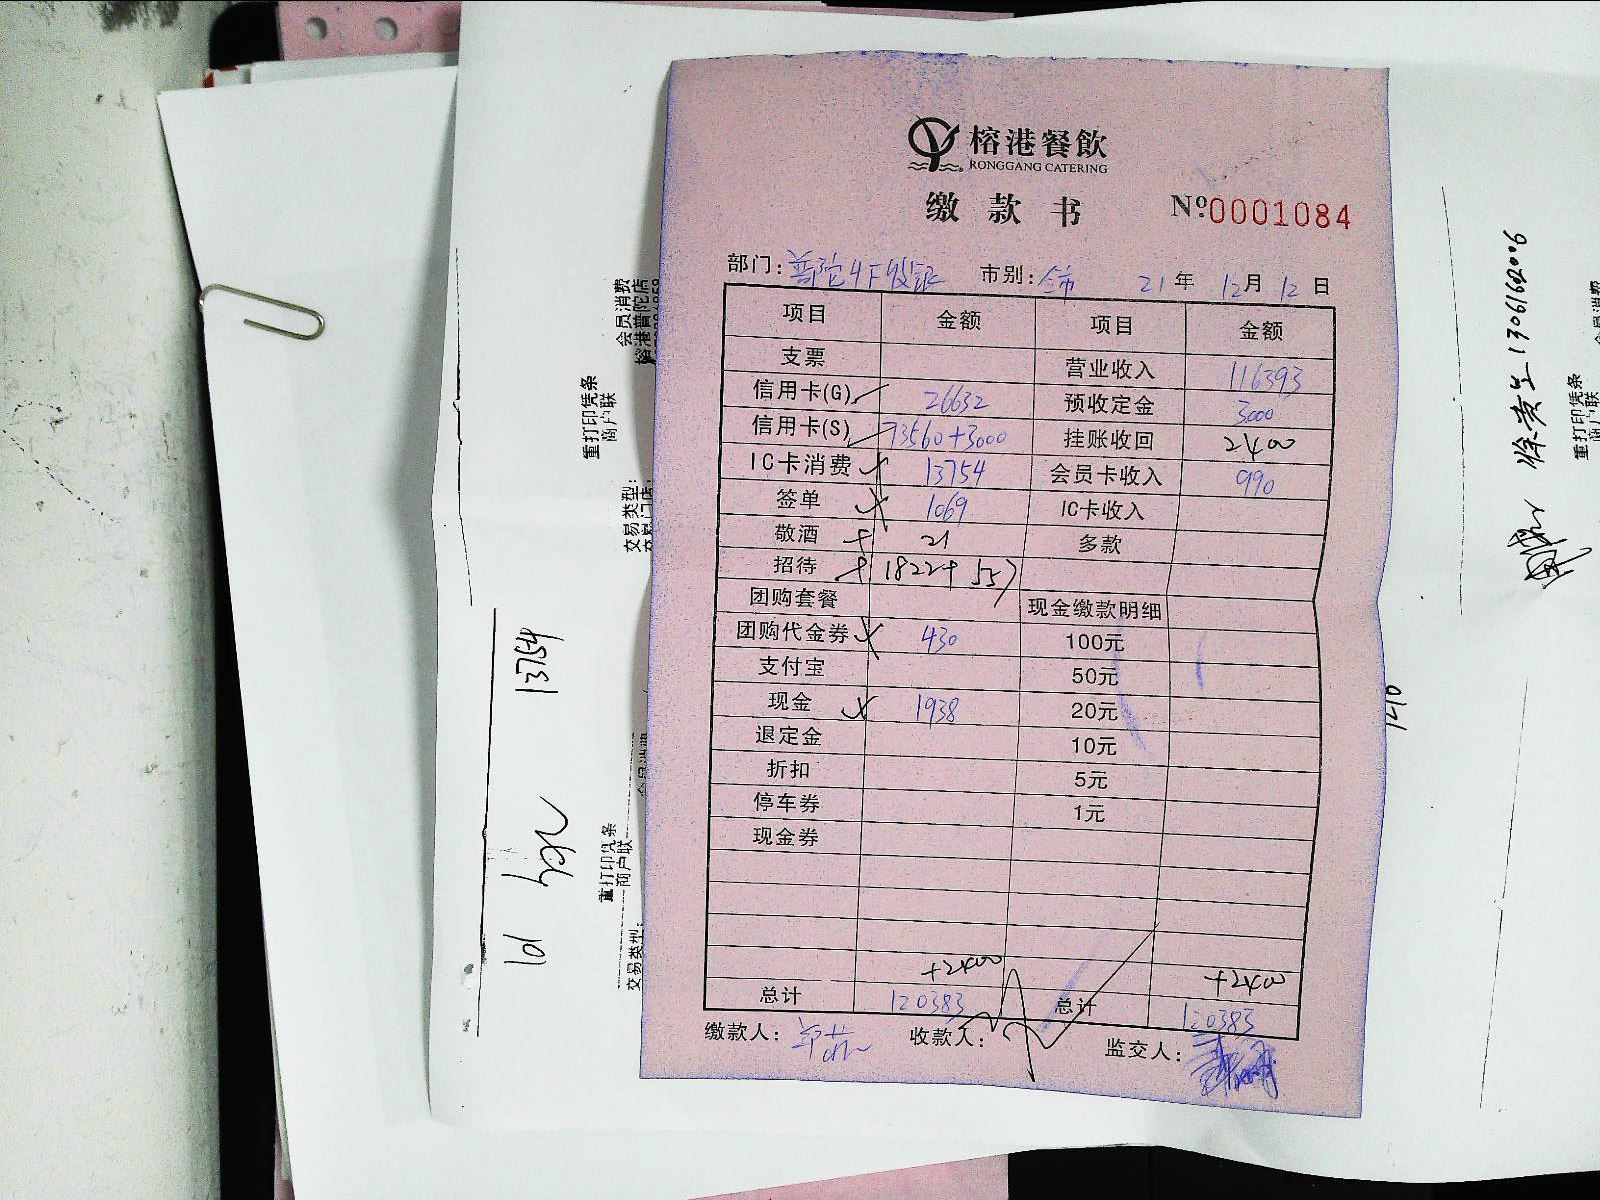 榕港餐飲
RONGGANG CATERING
缴款书 Nº:0001084
部门: 普陀4F收银 市别: 全市 21年 12月 12日
项目 金额 项目 金额
支票 营业收入 116393
信用卡(G) 26632 预收定金 3000
信用卡(S) 73560+3000 挂账收回 2400
IC卡消费 13754 会员卡收入 990
签单 1069 IC卡收入
敬酒 21 多款
招待 1822+557
团购套餐 现金缴款明细
团购代金券 430 100元
支付宝 50元
现金 1938 20元
退定金 10元
折扣 5元
停车券 1元
现金券
+2400 +2400
总计 120383 总计 120383
缴款人: 收款人: 监交人:
会员消费
榕港普陀店
重打印凭条
商户联
交易类型:
13754
重打印凭条
商户联
交易类型:
13061662006
重打印凭条
商户联